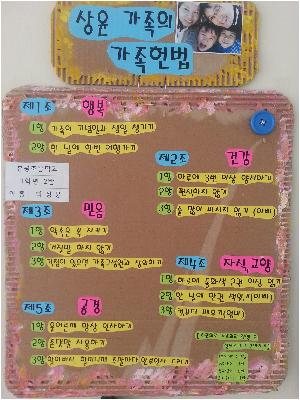 상윤 가족의
가족헌법
제1조 행복
1항 가족의 기념일과 생일 챙기기
2항 한 달에 한번 여행가기
제2조 건강
1항 하루에 3번 이상 양치하기
2항 편식하지 않기
3항 술 많이 마시지 않기 (아빠)
제3조 믿음
1항 약속은 꼭 지키기
2항 거짓말 하지 않기
3항 걱정이 있으면 가족구성원과 상의하기
제4조 지식, 교양
1항 하루에 동화책 2권 이상 읽기
2항 한 달에 만권 책읽기(아빠)
3항 컴퓨터 배우기(엄마)
제5조 공경
1항 웃어른께 항상 인사하기
2항 존댓말 사용하기